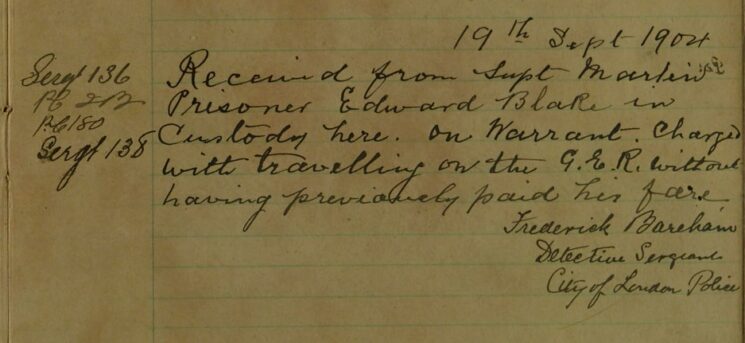 19th Sept 1904
Sergt 136
PC 212
PC 180
Sergt 138
Received from Supt Martin
Prisoner Edward Blake in
Custody here. On Warrant. Charged
with travelling on the G.E.R. without
having previously paid his fare
Frederick Bareham
Detective Sergeant
City of London Police